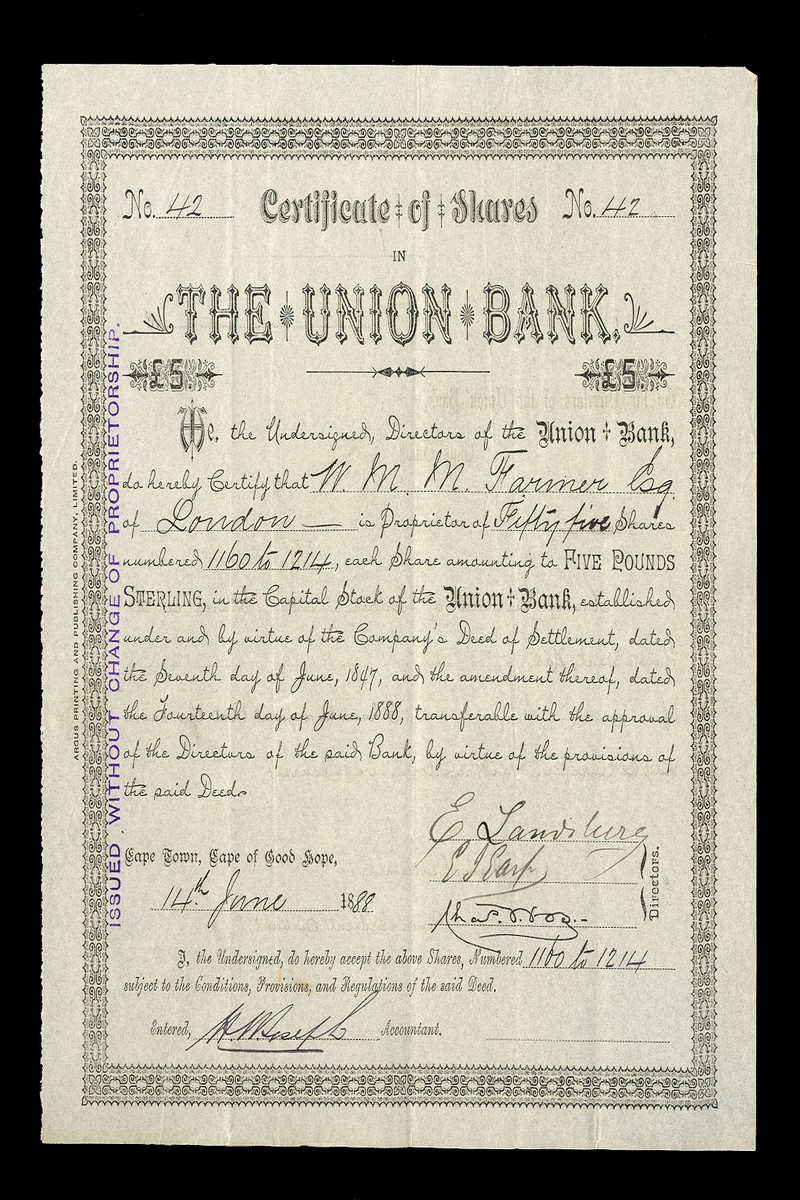 No. 42 Certificate of Shares No. 42
IN
THE UNION BANK.
£5. £5.
We, the Undersigned, Directors of the Union Bank,
do hereby Certify that W. M. M. Farmer Esq
of London — is Proprietor of Fifty five Shares
numbered 1160 to 1214, each Share amounting to FIVE POUNDS
STERLING, in the Capital Stock of the Union Bank, established
under and by virtue of the Company's Deed of Settlement, dated
the Seventh day of June, 1847, and the amendment thereof, dated
the Fourteenth day of June, 1888, transferable with the approval
of the Directors of the said Bank, by virtue of the provisions of
the said Deed.
E. Landsberg
Cape Town, Cape of Good Hope,
14th June 1888
Directors.
I, the Undersigned, do hereby accept the above Shares, Numbered 1160 to 1214
subject to the Conditions, Provisions, and Regulations of the said Deed.
Entered, H. W. Joseph Accountant.
ISSUED WITHOUT CHANGE OF PROPRIETORSHIP.
ARGUS PRINTING AND PUBLISHING COMPANY, LIMITED.